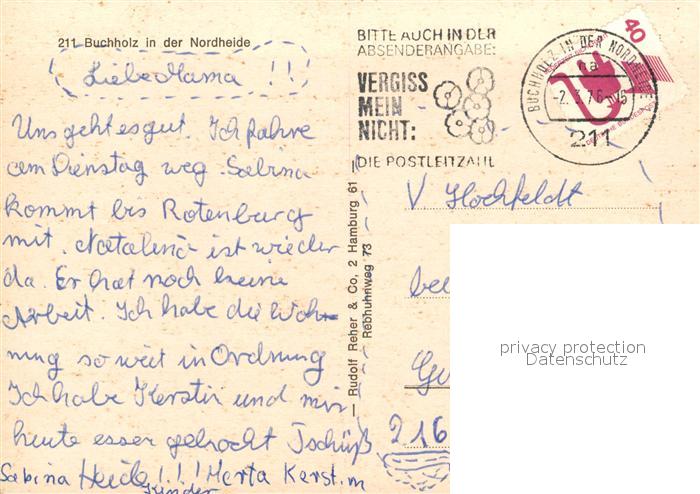 211 Buchholz in der Nordheide
Liebe Mama !!
Uns geht es gut. Ich fahre
am Dienstag weg. Sabina
kommt bis Rotenburg
mit. ist wieder
da. Er hat noch keine
Arbeit. Ich habe die Woh-
nung so weit in Ordnung
Ich habe Kerstin und mir
heute esser gekocht Tschüß
Sabina Heide !!! Merta Kerstin
Kinder
BITTE AUCH IN DER
ABSENDERANGABE:
VERGISS
MEIN
NICHT:
DIE POSTLEITZAHL
BUCHHOLZ IN DER NORDHEIDE
211
40
Rudolf Reher & Co, 2 Hamburg 61 —
Rebhuhnweg 73
V Hochfeldt
bei
216
privacy protection
Datenschutz